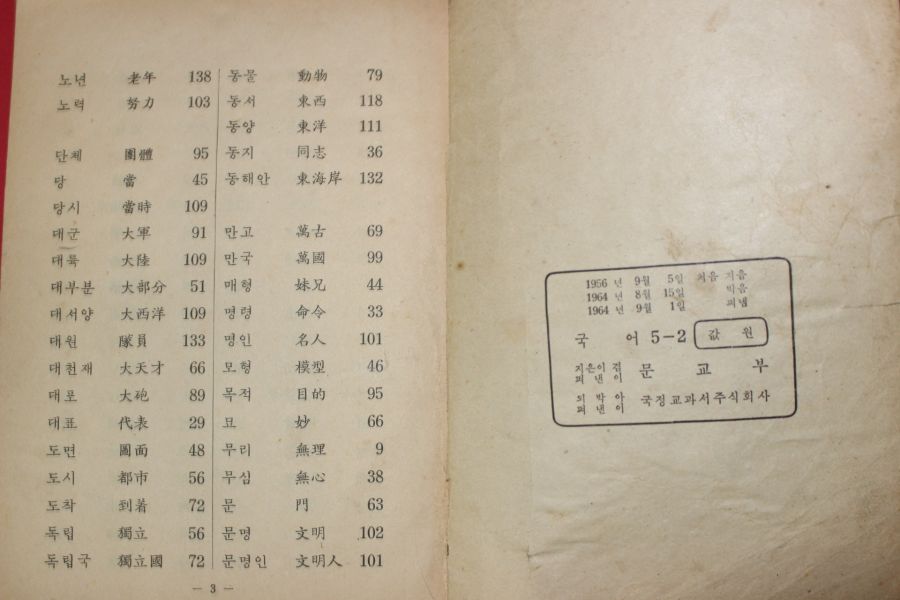 노년 老年 138
노력 努力 103
단체 團體 95
당 當 45
당시 當時 109
대군 大軍 91
대륙 大陸 109
대부분 大部分 51
대서양 大西洋 109
대원 隊員 133
대천재 大天才 66
대포 大砲 89
대표 代表 29
도면 圖面 48
도시 都市 56
도착 到着 72
독립 獨立 56
독립국 獨立國 72
동물 動物 79
동서 東西 118
동양 東洋 111
동지 同志 36
동해안 東海岸 132
만고 萬古 69
만국 萬國 99
매형 妹兄 44
명령 命令 33
명인 名人 101
모형 模型 46
목적 目的 95
묘 妙 66
무리 無理 9
무심 無心 38
문 門 63
문명 文明 102
문명인 文明人 101
— 3 —
1956 년 9월 5일 처음 지음
1964 년 8월 15일 박음
1964 년 9월 1일 펴냄
국 어 5-2 값 원
지은이 겸
펴 낸 이 문 교 부
되 박 아
펴 낸 이 국정교과서주식회사